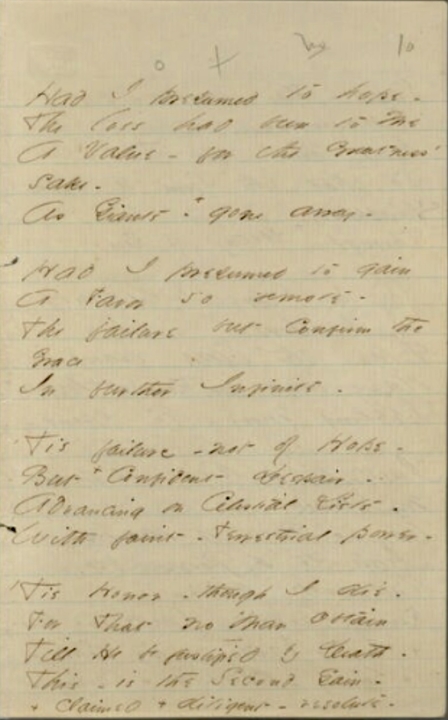 o + 10
Had I presumed to hope -
The loss had been to Me
A Value - for the Greatness'
Sake -
As Giants - + gone away -
Had I presumed to gain
A Favor so remote -
The failure but confirm the
Grace
In further Infinite -
'Tis failure - not of Hope -
But + Confident Despair -
Advancing on Celestial Lists -
With faint - Terrestrial power -
'Tis Honor - though I die -
For That no Man obtain
Till He be justified by Death -
This - is the Second Gain -
+ Claimed + diligent - resolute -